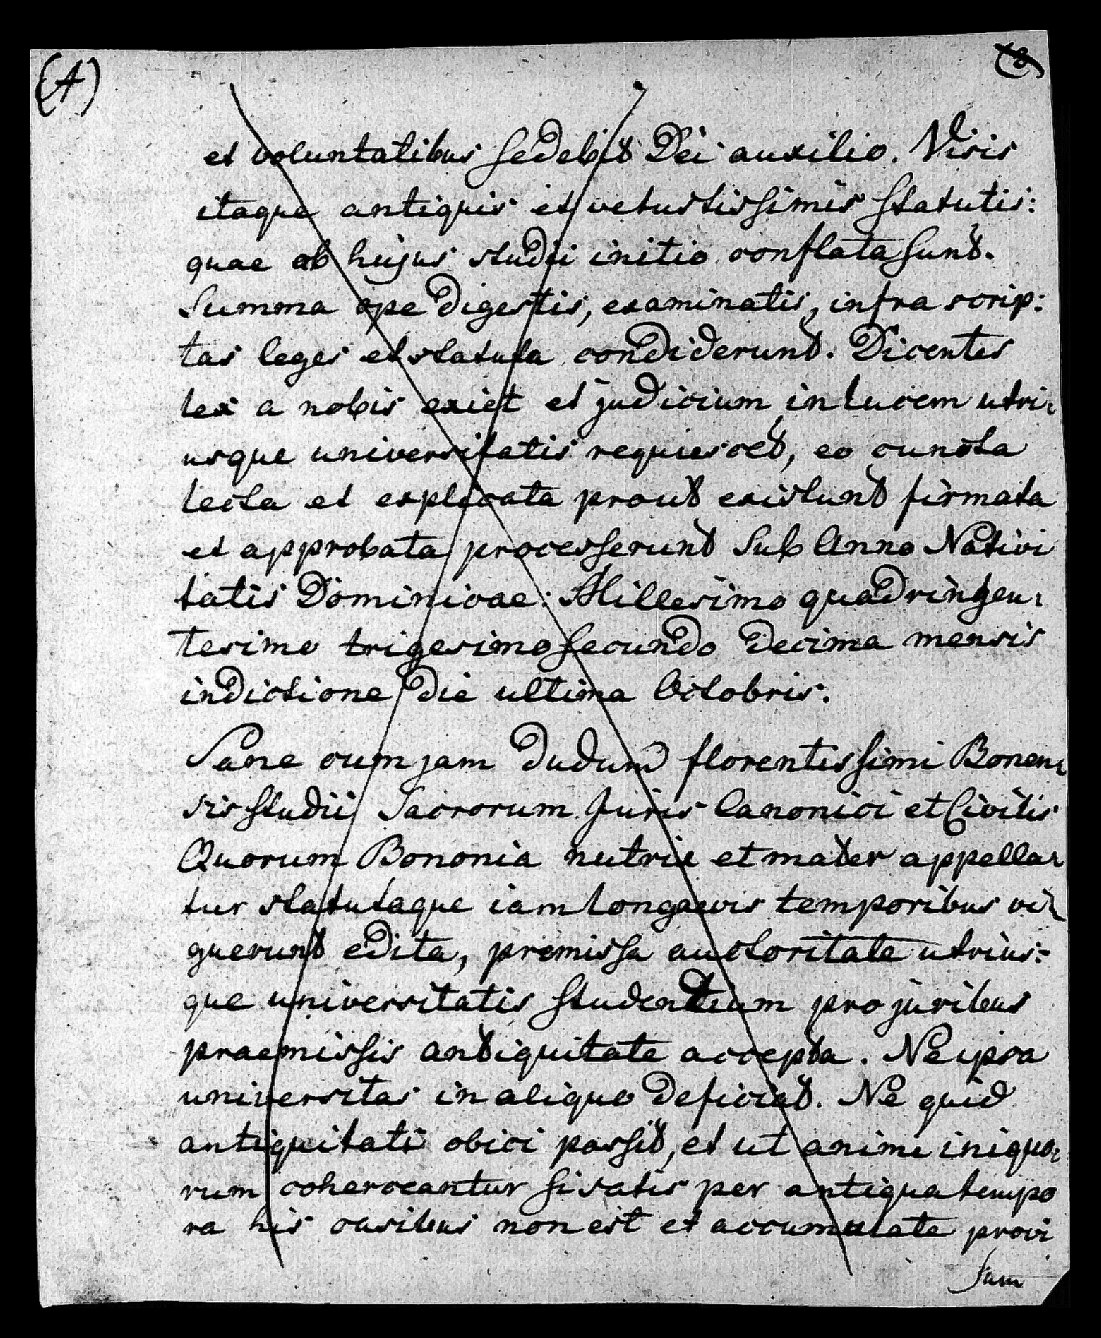 (A)
et voluntatibus sedebit Dei auxilio. Visis
itaque antiquis et vetustissimis statutis:
quae ab hujus studii initio conflata sunt.
Summa ope digestis, examinatis, infra scrip:
tas leges et statuta condiderunt. Dicentes
lex a nobis exiet et judicium in lucem utri-
usque universitatis requiescet, eo cuncta
lecta et explicata prout existunt firmata
et approbata processerunt sub Anno Nativi
tatis Dominicae. Millesimo quadringen-
tesimo trigesimo secundo Decima mensis
indictione die ultima Octobris.
Sane cum jam dudum florentissimi Bonen-
sis studii Sacrorum Juris Canonici et Civilis
Quorum Bononia nutrix et mater appella-
tur statutaque iam longaevis temporibus vi-
guerunt edita, premissa auctoritate utrius-
que universitatis studentium pro juribus
praemissis antiquitate accepta. Ne ipsa
universitas in aliquo deficiat. Ne quid
antiquitati obici possit, et ut animi iniquo-
rum coherceantur si satis per antiqua tempo
ra his casibus non est et accumulate provi
sum